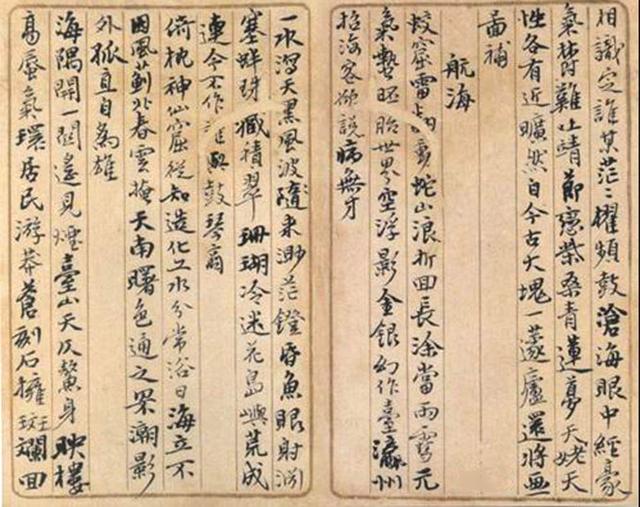 相識定誰某茫〻櫂頻鼓滄海眼中經豪
氣難吐靖節戀柴桑青蓮夢天姥天
性各有近曠然自今古大塊一蘧廬還將無
啚補
航海
蛟窟雷蛇山浪折回長涂當雨雪元
氣蟄胚胎世界空浮影金銀幻作臺瀛州
招海客欲說病無才
一氷瀉天黑風波隨來渺茫鐙昏魚眼射洞
塞蚌珠臧積翠珊瑚冷迷花島嶼荒成
連今不作誰與鼓琴商
倚枕神仙窟從知造化工水分常浴日海立不
因風薊北春雲掩天南曙色通之罘潮影
外孤直自為雄
海隅開一關遙見煙臺山天仄鰲身映樓
高蜃氣環居民游莽蒼刻石擁斑斕回